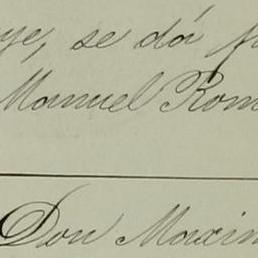 ye, se dá p
Manuel Rom
Don Maxim